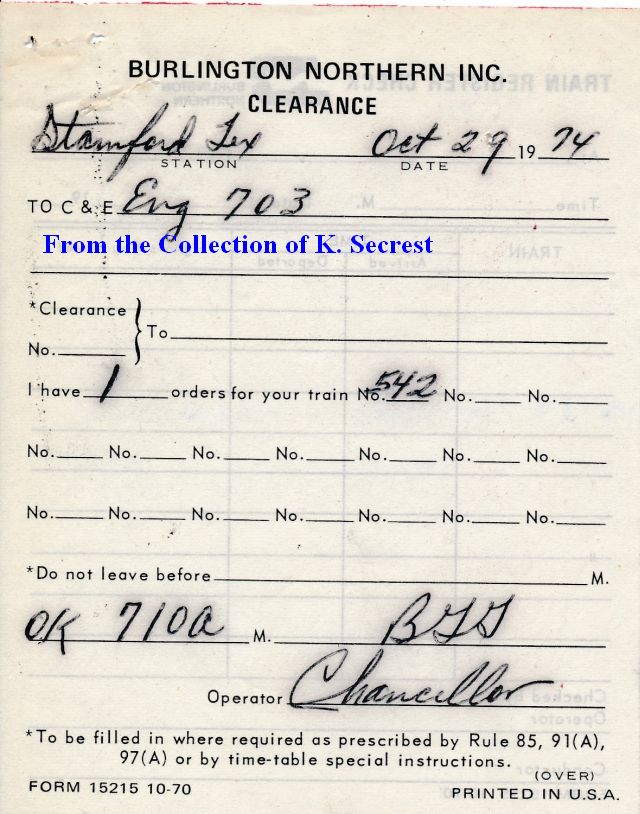 BURLINGTON NORTHERN INC.
CLEARANCE
Stamford Tex Oct 29 19 74
STATION DATE
TO C & E Eng 703
From the Collection of K. Secrest
*Clearance
No.____ } To____
I have 1 orders for your train No. 542 No.____ No.____
No.____ No.____ No.____ No.____ No.____ No.____ No.____
No.____ No.____ No.____ No.____ No.____ No.____ No.____
*Do not leave before____ M.
OK 710a M. BGG
Operator Chancellor
*To be filled in where required as prescribed by Rule 85, 91(A),
97(A) or by time-table special instructions.
(OVER)
FORM 15215 10-70 PRINTED IN U.S.A.